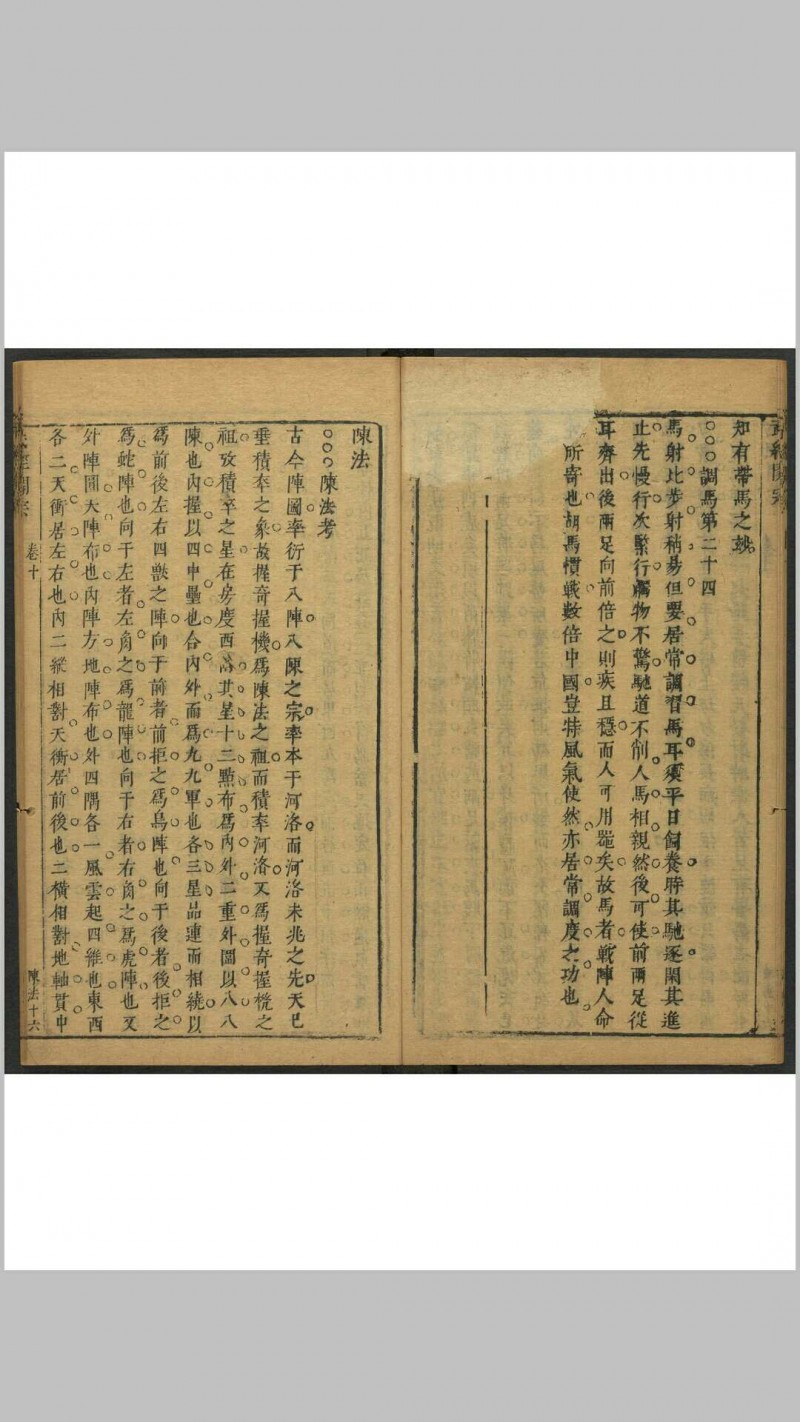 知有帶馬之執
○○○調馬第二十四
馬射比步射稍易但要居常調習馬耳須平日飼養時其馳逐閑其進
止先慢行次緊行觸物不驚馳道不削人馬相親然後可使前兩足從
耳齊出後兩足向前倍之則疾且穩而人可用毙矣故馬者戰陣人命
所寄也胡馬慣戰數倍中國豈特風氣使然亦居常調度之功也
陳法
○○○陳法考
古今陣圖率衍于八陣八陳之宗率本于河洛而河洛未兆之先天已
垂積卒之象故握奇握機爲陳法之祖而積率河洛又爲握奇握機之
祖攷積卒之星在房度西落其星十二點布爲內外二重外圓以八八
陳也內握以四中壘也合內外而爲九九軍也各三星品連而相繞以
爲前後左右四獸之陣向于前者前拒之爲鳥陣也向于後者後拒之
爲蛇陣也向于左者左角之爲龍陣也向于右者右角之爲虎陣也又
外陣圓天陣布也內陣方地陣布也外四隅各一風雲起四維也東西
各二天衝居左右也內二縱相對天衝居前後也二橫相對地軸貫中
卷十
陳法十六